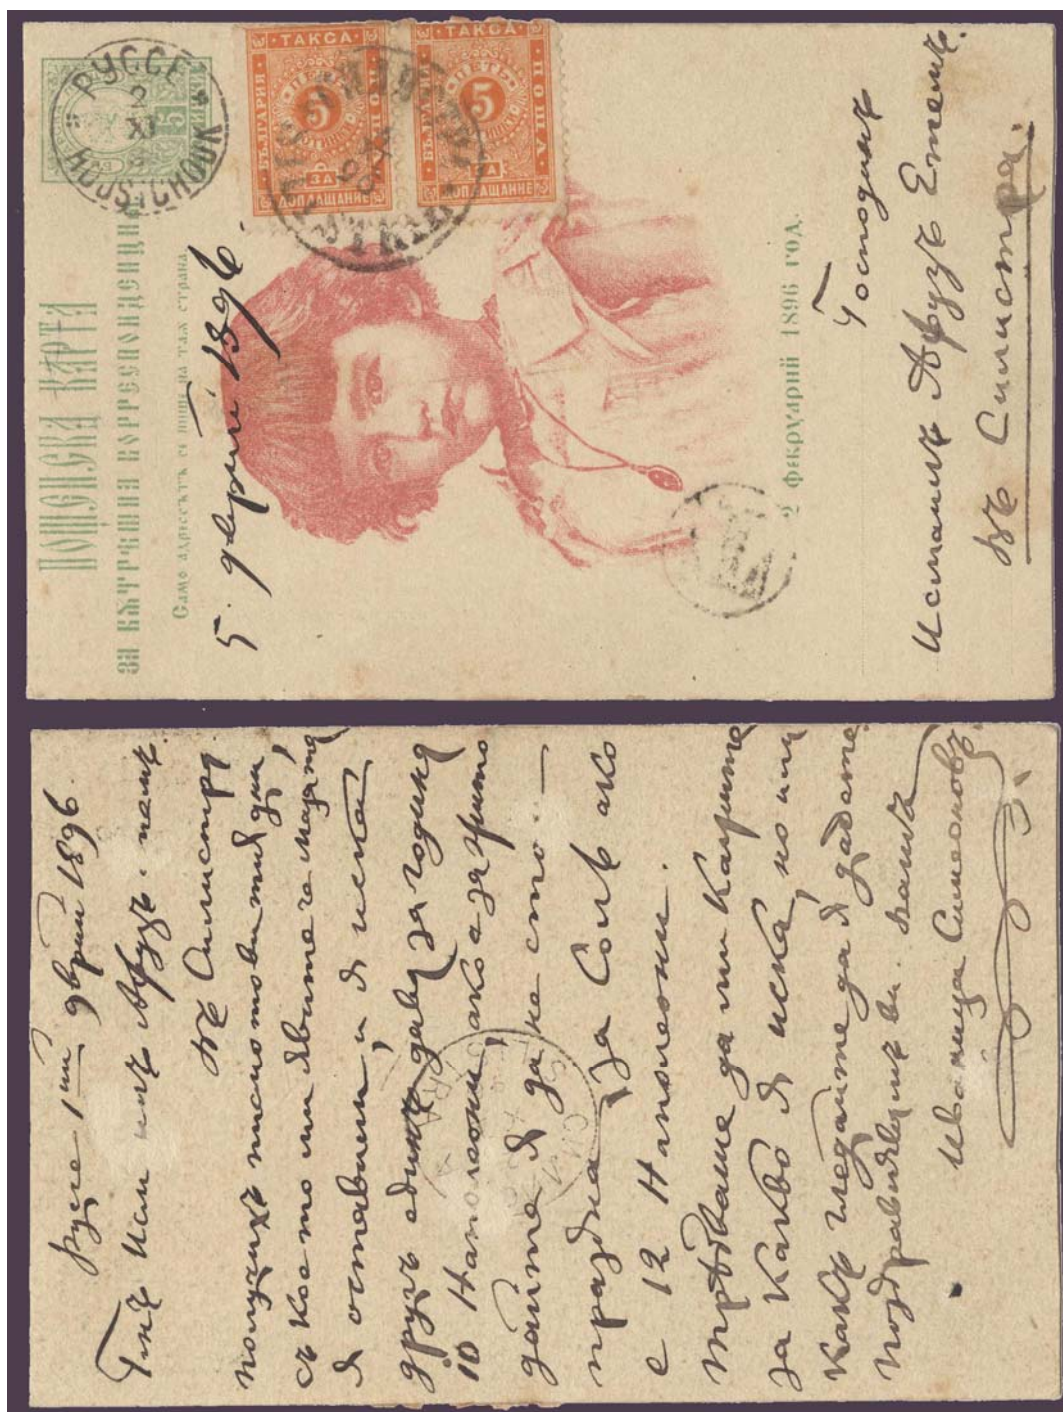 ПОЩЕНСКА КАРТА
ЗА ВѪТРѢШНА КОРРЕСПОНДЕНЦИЯ
Само адрессътъ се пише на тая страна.
РУССЕ
2
XI
ROUSTCHOUK
5
ТАКСА
БЪЛГАРИЯ
ПОЩА
ПЕТЬ
5
ЗА
ДОПЛАЩАНИЕ
ТАКСА
БЪЛГАРИЯ
ПОЩА
ПЕТЬ
5
ЗА
ДОПЛАЩАНИЕ
5. 9врий 1896.
2 Февруарий 1896 год.
Господинъ
Исмаилъ Афузъ Еминъ.
въ Силистра.
Русе 1ий 9врий 1896
Гнъ Исмаилъ Афузъ
въ Силистра
получихъ писмото ви
съ което ми явите че
я оставили, и я искалъ
другъ единъ дава за година
10 Наполеони, ако а за
дайте я да не сто —
праздна, за Солъ ако
е 12 Наполеони.
трѣбваше да ми кажите
за какво я иска, но или
какъ гледайте да я дадете
поздравлѣние ви. вашъ
Иваница Симеоновъ.